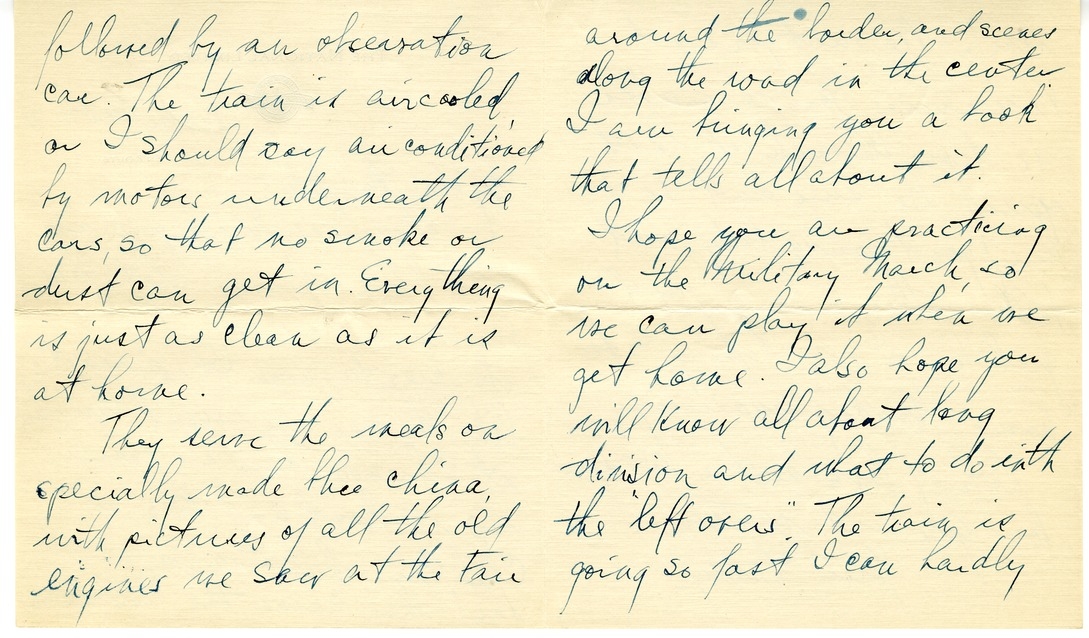 followed by an observation
car. The train is aircooled,
or I should say airconditioned
by motors underneath the
cars, so that no smoke or
dust can get in. Everything
is just as clean as it is
at home.
They serve the meals on
specially made blue china,
with pictures of all the old
engines we saw at the Fair
around the border, and scenes
along the road in the center
I am bringing you a book
that tells all about it.
I hope you are practicing
on the Military March, so
we can play it when we
get home. I also hope you
will know all about long
division and what to do with
the "left overs". The train is
going so fast I can hardly